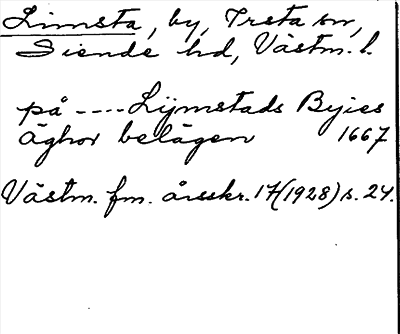 Limsta, by, Irsta sn,
Siende hd, Västm. l.
på ---- Lijmstads Byies
äghor belägen 1667
Västm. fm. årsskr. 17 (1928) s. 24.